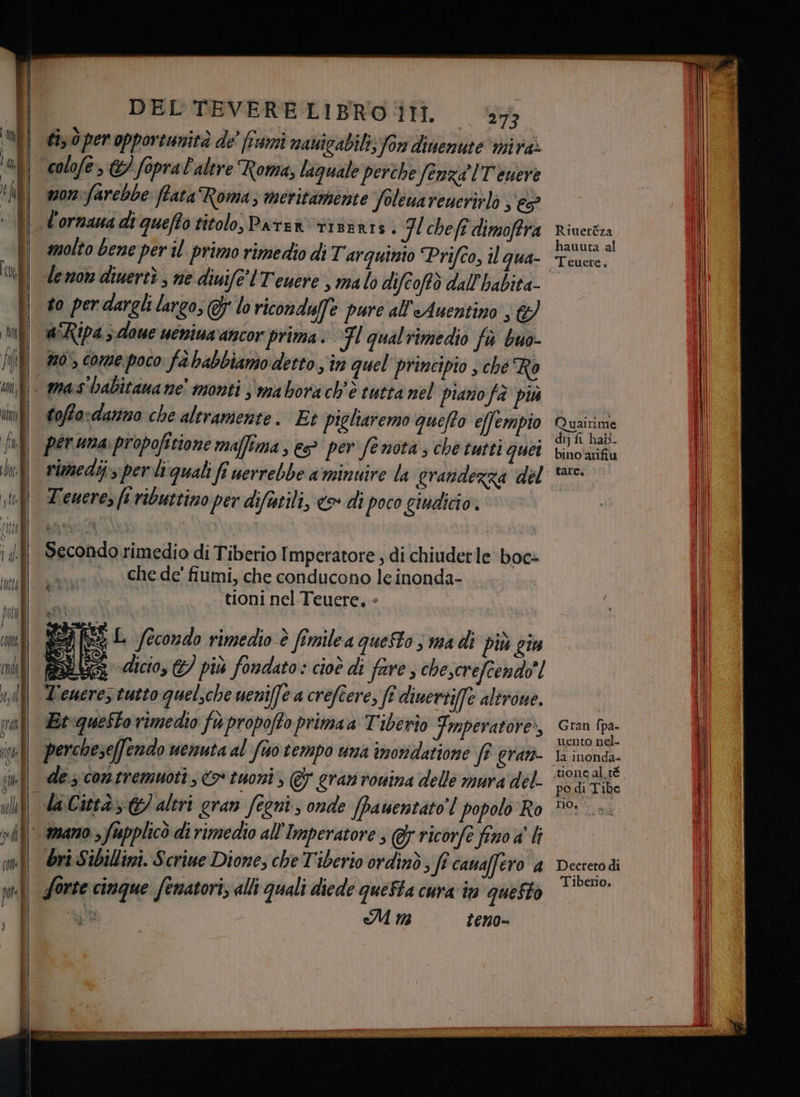 DEL TEVERE LIBRO III. 273
ti, ò per opportunità de' fiumi nauigabili, son diuenute mira-
colose, & sopra l'altre Roma, laquale perche senza'l Teuere
non sarebbe stata Roma, meritamente soleua reuerirlo, et
l'ornaua di questo titolo, PATER TIBERIS. Il che si dimostra
molto bene per il primo rimedio di Tarquinio Prisco, il qua-
le non diuertì, ne diuise'l Teuere, ma lo discostò dall'habita-
to per dargli largo, & lo ricondusse pure all'Auentino, &
a Ripa, doue ueniua ancor prima. Il qual rimedio fù buo-
nò, come poco fà habbiamo detto, in quel principio, che Ro
ma s'habitaua ne' monti, ma hora ch'è tutta nel piano fà più
tosto danno che altramente. Et pigliaremo questo essempio
per una propositione massima, et per se nota, che tutti quei
rimedij, per li quali si uerrebbe a minuire la grandezza del
Teuere, si ributtino per disutili, et di poco giudicio.
Secondo rimedio di Tiberio Imperatore, di chiuder le boc-
che de' fiumi, che conducono le inonda-
tioni nel Teuere.
IL secondo rimedio è simile a questo, ma di più giu
dicio, & più fondato: cioè di fare, che, crescendo'l
Teuere, tutto quel, che uenisse a crescere, si diuertisse altroue.
Et questo rimedio fù proposto prima a Tiberio Imperatore,
perche, essendo uenuta al suo tempo una inondatione sì gran-
de, con tremuoti, et tuoni, & gran rouina delle mura del-
la Città, & altri gran segni, onde spauentato'l popolo Ro
mano, supplicò di rimedio all'Imperatore, & ricorse fino a' li
bri Sibillini. Scriue Dione, che Tiberio ordinò, si cauassero a
sorte cinque senatori, alli quali diede questa cura in questo
Mm teno-
Riueréza
hauuta al
Teuere.
Quai rime
dij si hab-
bino a rifiu
tare.
Gran spa-
uento nel-
la inonda-
tione al té
po di Tibe
rio.
Decreto di
Tiberio.